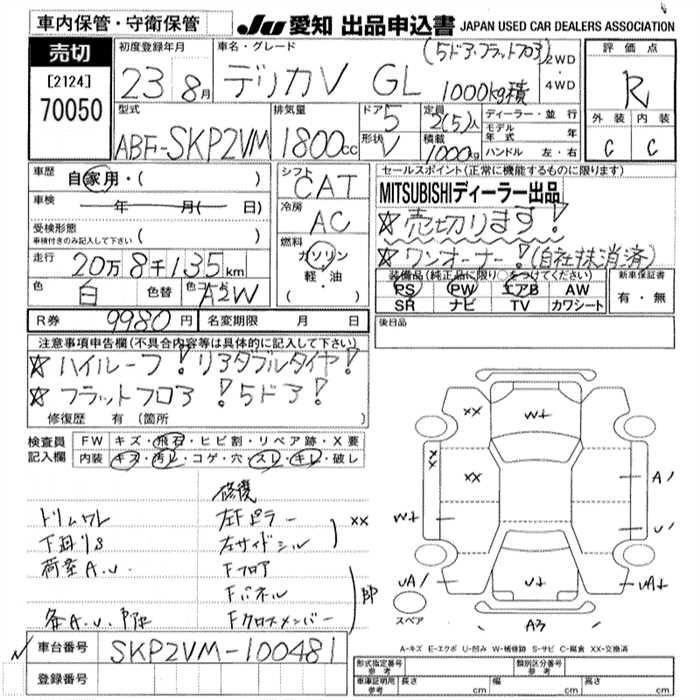 車内保管・守衛保管
JU 愛知 出品申込書 JAPAN USED CAR DEALERS ASSOCIATION
売切
[2124]
70050
初度登録年月
23 8月
車名・グレード
デリカV GL
(5ドア・フラットフロア)
1000kg積
2WD
・
4WD
評価点
R
外装 内装
C C
型式
ABF-SKP2VM
排気量
1800cc
ドア 5
形状 V
定員 2(5)人
積載 1000kg
ディーラー・並行
モデル年式 年
ハンドル 左・右
車歴
自家用・( )
車検
年 月( 日)
受検形態
車検付きのみ記入して下さい
( )
走行 20万8千135km
色 白 色替 色コード A2W
シフト
CAT
冷房
AC
燃料
ガソリン
軽・油
( )
セールスポイント(正常に機能するものに限ります)
MITSUBISHIディーラー出品
☆売切ります!
☆ワンオーナー!(自社抹消済)
装備品(純正品に限り○をつけてください)
PS PW エアB AW
SR ナビ TV カワシート
新車保証書
有・無
R券 9980円 名変期限 月 日
後日品
注意事項申告欄(不具合内容等は具体的に記入して下さい)
☆ハイルーフ!リアダブルタイヤ!
☆フラットフロア!5ドア!
修復歴 有(箇所 )
検査員記入欄
FW キズ・飛石・ヒビ割・リペア跡・X要
内装 キズ・汚れ・コゲ・穴・スレ・キレ・破レ
修復
トリムワレ 左Fピラー
XX
左サイドシル
荷室A.U. Fフロア
Fパネル
Fクロスメンバー
XX
W+
XX
XX
W+
A/
U/
UA/
U+
UA+
A3
スペア
A-キズ E-エクボ U-凹み W-補修跡 S-サビ C-腐食 XX-交換済
車台番号 SKP2VM-100481
登録番号
形式指定番号 参考
類別区分番号 参考
車庫証明用 参考 長さ cm 幅 cm 高さ cm